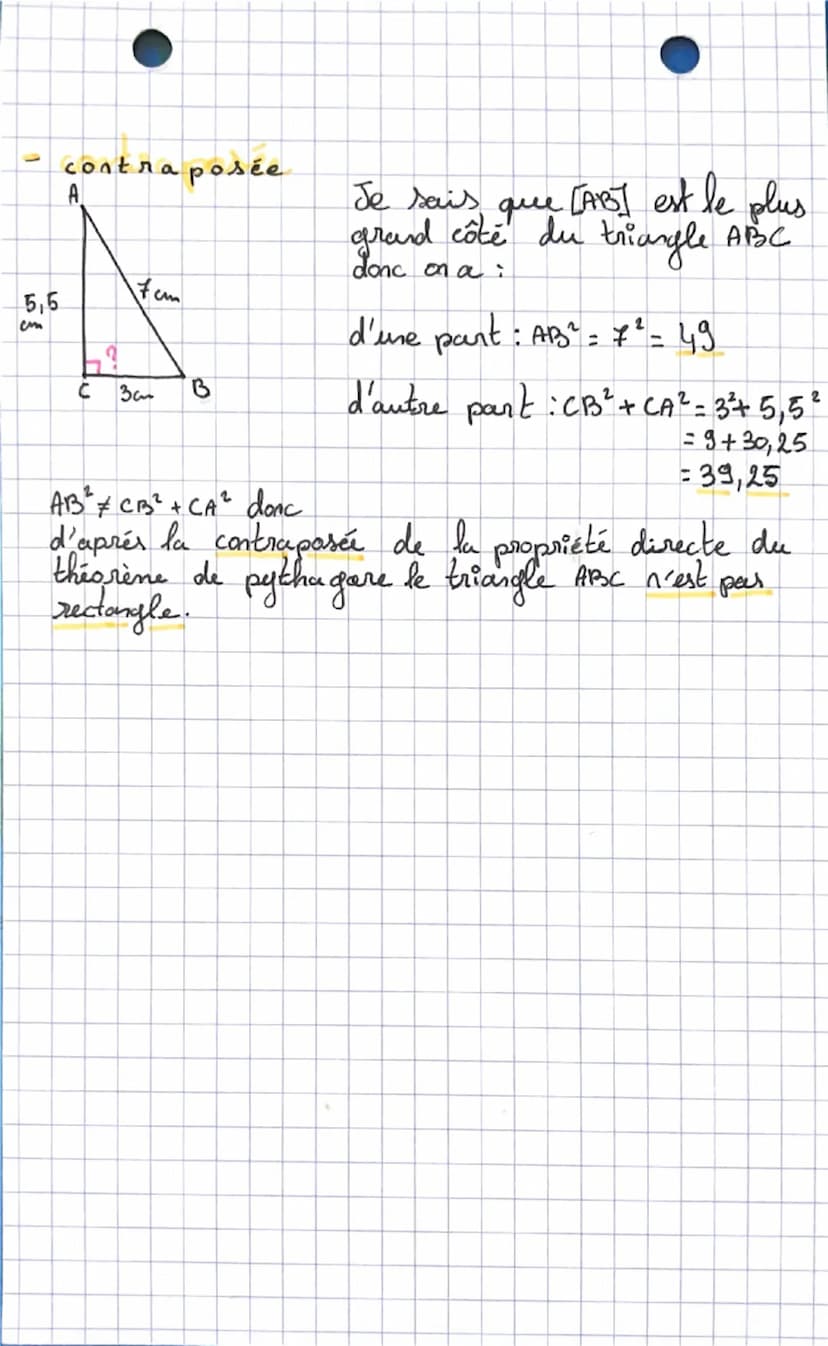 - contraposée
A
Je sais que [AB] est le plus
grand côté du triangle ABC
donc on a :
7 cm
5,5
cm
?
C 3cm B
d'une part : AB² = 7² = 49
d'autre part : CB² + CA² = 3² + 5,5²
= 9 + 30,25
= 39,25
AB² ≠ CB² + CA² donc
d'aprés la contraposée de la propriété directe du
théorème de pythagore le triangle ABC n'est pas
rectangle.